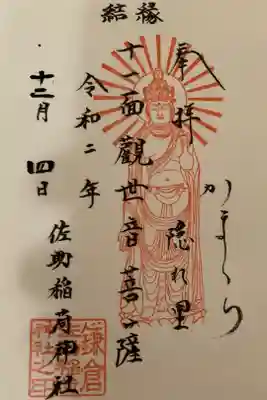 結縁
かまくら
奉拝 隠れ里
十一面觀世音菩薩
令和二年
十二月 四日
佐助稲荷神社
鎌倉
神社之印